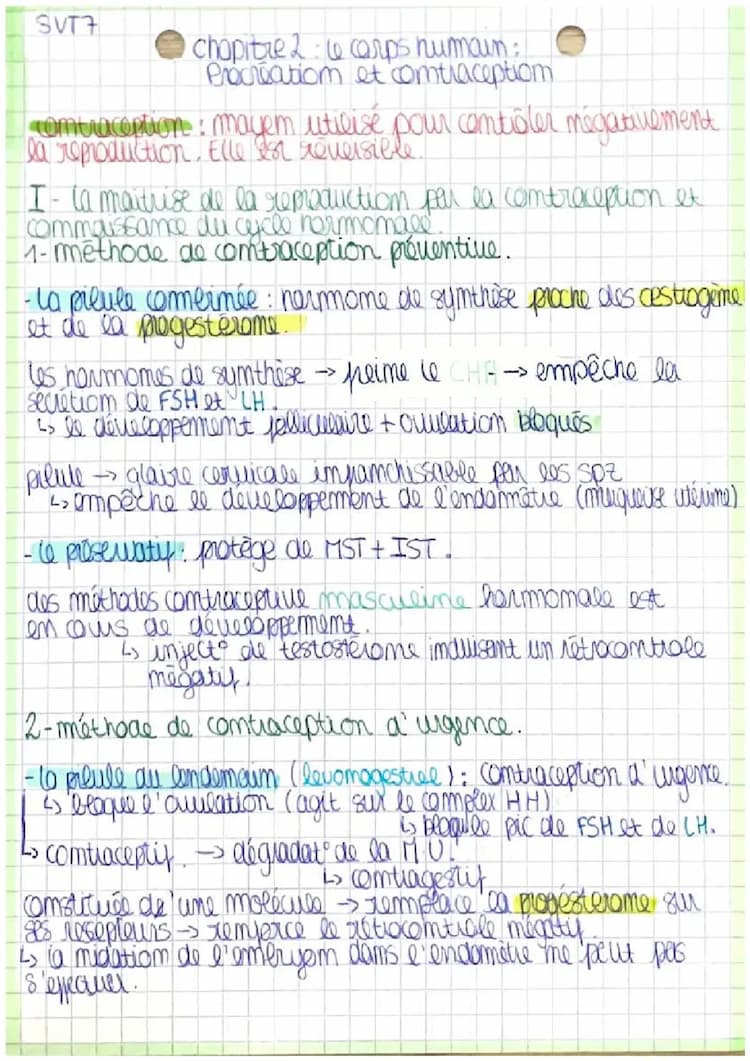 SVT7
chapitre 2 : le corps humain :
Procréation et contraception
contraception : moyen utilisé pour contôler négativement
la reproduction. Elle est réversible.
I - la maitrise de la reproduction par la contraception et
connaissance du cycle hormonale.
1 - méthode de contraception préventive.
- La pilule combinée : hormone de synthèse proche des œstrogène
et de la progestérone.
les hormones de synthèse → freine le CHH → empêche la
sécrétion de FSH et LH.
↳ le développement folliculaire + ovulation bloqués
pilule → glaire cervicale infranchissable par les SPZ
↳ empêche le développement de l'endomètre (muqueuse utérine)
- le préservatif : protège de MST + IST.
des méthodes contraceptive masculine hormonale est
en cours de développement.
↳ inject° de testostérone induisant un rétrocontrole
négatif.
2 - méthode de contraception d'urgence.
- la pilule du lendemain (levonogestrel) : contraception d'urgence.
↳ bloque l'ovulation (agit sur le complex HH)
↳ bloque le pic de FSH et de LH.
↳ contraceptif. → dégradat° de la M.U.
↳ contragestif
constituée d'une molécule → remplace la progésterone sur
ses resepteurs → renforce le rétrocontrole négatif.
↳ la nidation de l'embryon dans l'endomètre ne peut pas
s'effectuer.